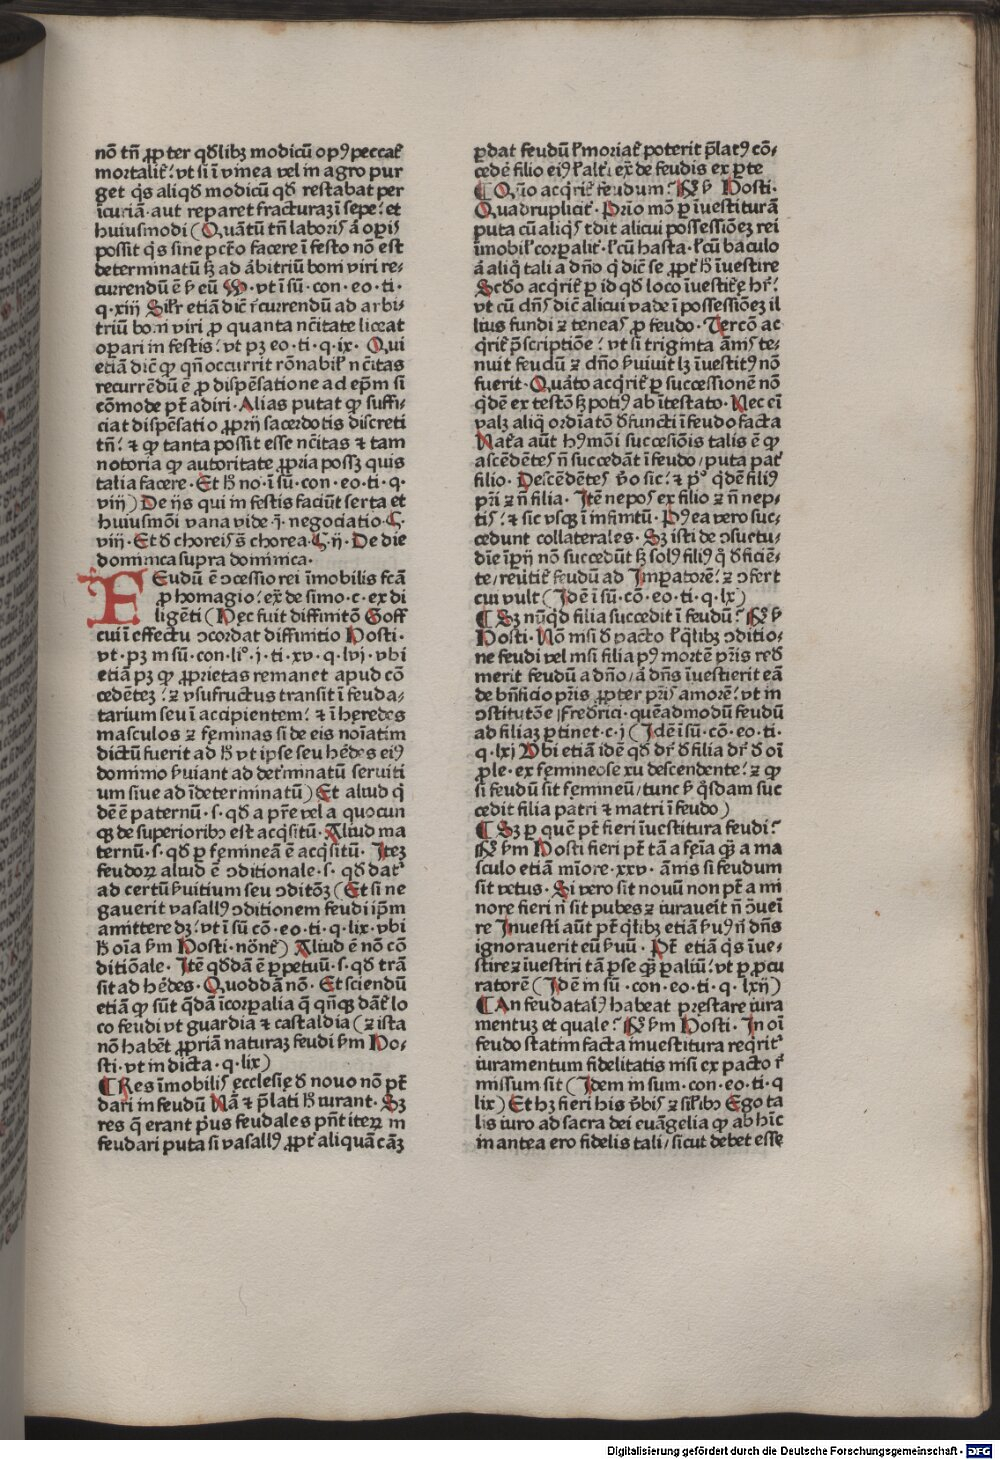 nō tn̄ ꝓpter qd̓libꝫ modicū opꝰ peccat͛
mortalit͛. vt si ī vinea vel in agro pur
get q̄s aliqd̓ modicū qd̓ restabat per
īcuriā. aut reparet fracturaꝫ ī sepe. et
huiusmodi (Quātū tn̄ laboris ⁊ oꝑis
possit q̄s sine pctō facere ī festo nō est
determinatū sꝫ ad arbitriū boni viri re-
currendū ē ẜm eū W. vt ī sū. con. eo. ti.
q. xiij Silr̄ etiā dic̄ r̄currendū ad arbi
triū boni viri ꝓ quanta nc̄itate liceat
oꝑari in festis. vt pꝫ eo. ti. q. ix. Qui
etiā dic̄ ꝙ qn̄ occurrit rōnabil̓ nc̄itas
recurrēdū ē ꝓ dispēsatione ad ep̄m si
cōmode pt̄ adiri. Alias putat ꝙ suffi-
ciat dispēsatio ꝓprij sacerdotis discreti
tn̄. ⁊ ꝙ tanta possit esse nc̄itas ⁊ tam
notoria ꝙ autoritate ꝓpria possꝫ quis
talia facere. Et h̓ no. ī sū. con. eo. ti. q.
viij) De ijs qui in festis faciūt serta et
huiusmōi vana vide .j. negociatio. ꝶ.
viij. Et d̓ choreis s̄ chorea. ꝶ. ij. De die
dominica supra dominica.
FEudū ē ↄcessio rei īmobilis fcā
ꝓ homagio. ex̄ de simo. c. ex di
ligēti (Hec fuit diffinitō Goff
cui ī effectu ↄcordat diffinitio Hosti.
vt. pꝫ in sū. con. liº. j. ti. xv. q. lvj. vbi
etiā pꝫ ꝙ ꝓprietas remanet apud cō
cedēteꝫ. ⁊ vsufructus transit ī feuda-
tarium seu ī accipientem. ⁊ ī heredes
masculos ⁊ feminas si de eis noīatim
dictū fuerit ad h̓ vt ipse seu hēdes eiꝰ
domino ẜuiant ad det̓minatū seruiti
um siue ad īdeterminatū) Et aliud q̓
dē ē paternū. s. qd̓ a pr̄e vel a quocun
qꝫ de superioribꝰ est acq̄sitū. Aliud ma
ternū. s. qd̓ ꝑ femineā ē acq̄sitū. Iteꝫ
feudoꝝ aliud ē ↄditionale. s. qd̓ dat͛
ad certū ẜuitium seu ↄditōꝫ (Et si ne
gauerit vasallꝰ ↄditionem feudi ip̄m
amittere dꝫ. vt ī sū cō. eo. ti. q. lix. vbi
h̓ oīa ẜm Hosti. nōnt͛) Aliud ē nō cō
ditiōale. Itē qd̓dā ē ꝑpetuū. s. qd̓ trā
sit ad hēdes. Quoddā nō. Et sciendū
etiā ꝙ sūt q̄dā īcorꝑalia q̄ qn̄qꝫ dāt͛ lo
co feudi vt guardia ⁊ castaldia (⁊ ista
nō habēt ꝓpriā naturaꝫ feudi ẜm Ho-
sti. vt in dicta. q. lix)
¶ Res īmobilis ecclesię d̓ nouo nō pt̄
dari in feudū Nā ⁊ p̄lati h̓ iurant. Sꝫ
res q̄ erant pͥus feudales pn̄t iteꝝ in
feudari puta si vasallꝰ ꝓpt̓ aliquā cāꝫ
ꝑdat feudū l̓ moriat͛ poterit p̄latꝰ cō-
cedē filio eiꝰ l̓ alt̓i. ex̄ de feudis ex ꝑte
¶ Quō acq̄rit͛ feudum? R̄ ẜ Hosti.
Quadruplicit͛. Prīo mō ꝑ īuestiturā
puta cū aliqͥs tdit alicui possessiōeꝫ rei
īmobil̓ corꝑalit͛. l̓ cū hasta. l̓ cū baculo
⁊ aliq̄ tali a dn̄o q̓ dic̄ se ꝓpt̓ h̓ īuestire
Scd̓o acq̄rit͛ ꝑ id qd̓ loco īuestit͛ę hr̄.
vt cū dn̄s dic̄ alicui vade ī possessiōeꝫ il
lius fundi ⁊ teneas ꝓ feudo. Tercō ac
q̄rit͛ p̄scriptiōe. vt si triginta ānis te-
nuit feudū ⁊ dn̄o ẜuiuit lꝫ īuestitꝰ nō
fuerit. Quāto acq̄rit͛ ꝑ successionē nō
q̓dē ex testō sꝫ potiꝰ ab ītestato. Nec eī
valꝫ aliq̄ ordīatō d̓functi ī feudo facta
Nat̓a aūt hꝰmōi succesiōis talis ē ꝙ
ascēdētes n̄ succedāt ī feudo, puta pat̓
filio. Descēdētes v̓o sic. ⁊ pͥº q̓dē filiꝰ
pr̄i ⁊ n̄ filia. Itē nepos ex filio ⁊ n̄ nep-
tis. ⁊ sic vsqꝫ ī infinitū. Pꝰea vero suc-
cedunt collaterales. Sꝫ isti de ↄsuetu-
dīe īperij nō succedūt sꝫ solꝰ filiꝰ q̓ d̓ficiē-
te, reūtit͛ feudū ad Imꝑatorē. ⁊ ↄfert
cui vult (Idē ī sū. cō. eo. ti. q. lx)
¶ Sꝫ nūqd̓ filia succedit ī feudū? R̄ ẜ
Hosti. Nō nisi d̓ pacto l̓ q̄libꝫ ↄditio-
ne feudi vel nisi filia pꝰ mortē pr̄is red̓
merit feudū a dn̄o, ⁊ dn̄s īuestierit eā
de bn̄ficio pr̄is ꝓpter pr̄is amorē. vt in
ↄstitutōe Fred̓rici. quēadmodū feudū
ad filiaꝫ ꝑtinet. c. j (Idē ī sū. cō. eo. ti.
q. lxj Vbi etiā idē qd̓ dr̄ d̓ filia dr̄ d̓ oī
ꝓle. ex femineo sexu descendente. ⁊ ꝙ
si feudū sit femineū, tunc ẜ q̓sdam suc
cedit filia patri ⁊ matri ī feudo)
¶ Sꝫ ꝑ quē pt̄ fieri īuestitura feudi?
R̄ ẜm Hosti fieri pt̄ tā a fēīa qꝫ a ma
sculo etiā mīore. xxv. ānis si feudum
sit vetus. Si vero sit nouū non pt̄ a mi
nore fieri n̄ sit pubes ⁊ iurauēit n̄ ↄuēī
re Inuesti aūt pt̄ q̓libꝫ etiā ẜuꝰ n̄ dn̄s
ignorauerit eū ẜuū. Pt̄ etiā q̄s īue-
stire ⁊ īuestiri tā ꝑ se qꝫ ꝑ aliū. vt ꝑ ꝓcu
ratorē (Idē in sū. con. eo. ti. q. lxij)
¶ An feudatariꝰ habeat prestare iura
mentuꝫ et quale? R̄ ẜm Hosti. In oī
feudo statim facta inuestitura req̄rit͛
iuramentum fidelitatis nisi ex pacto r̄
missum sit (Idem in sum. con. eo. ti. q
lix) Et hꝫ fieri his v̓bis ⁊ sil̓ibꝰ Ego ta
lis iuro ad sacra dei euāgelia ꝙ ab hīc
in antea ero fidelis tali, sicut debet esse
Digitalisierung gefördert durch die Deutsche Forschungsgemeinschaft - DFG